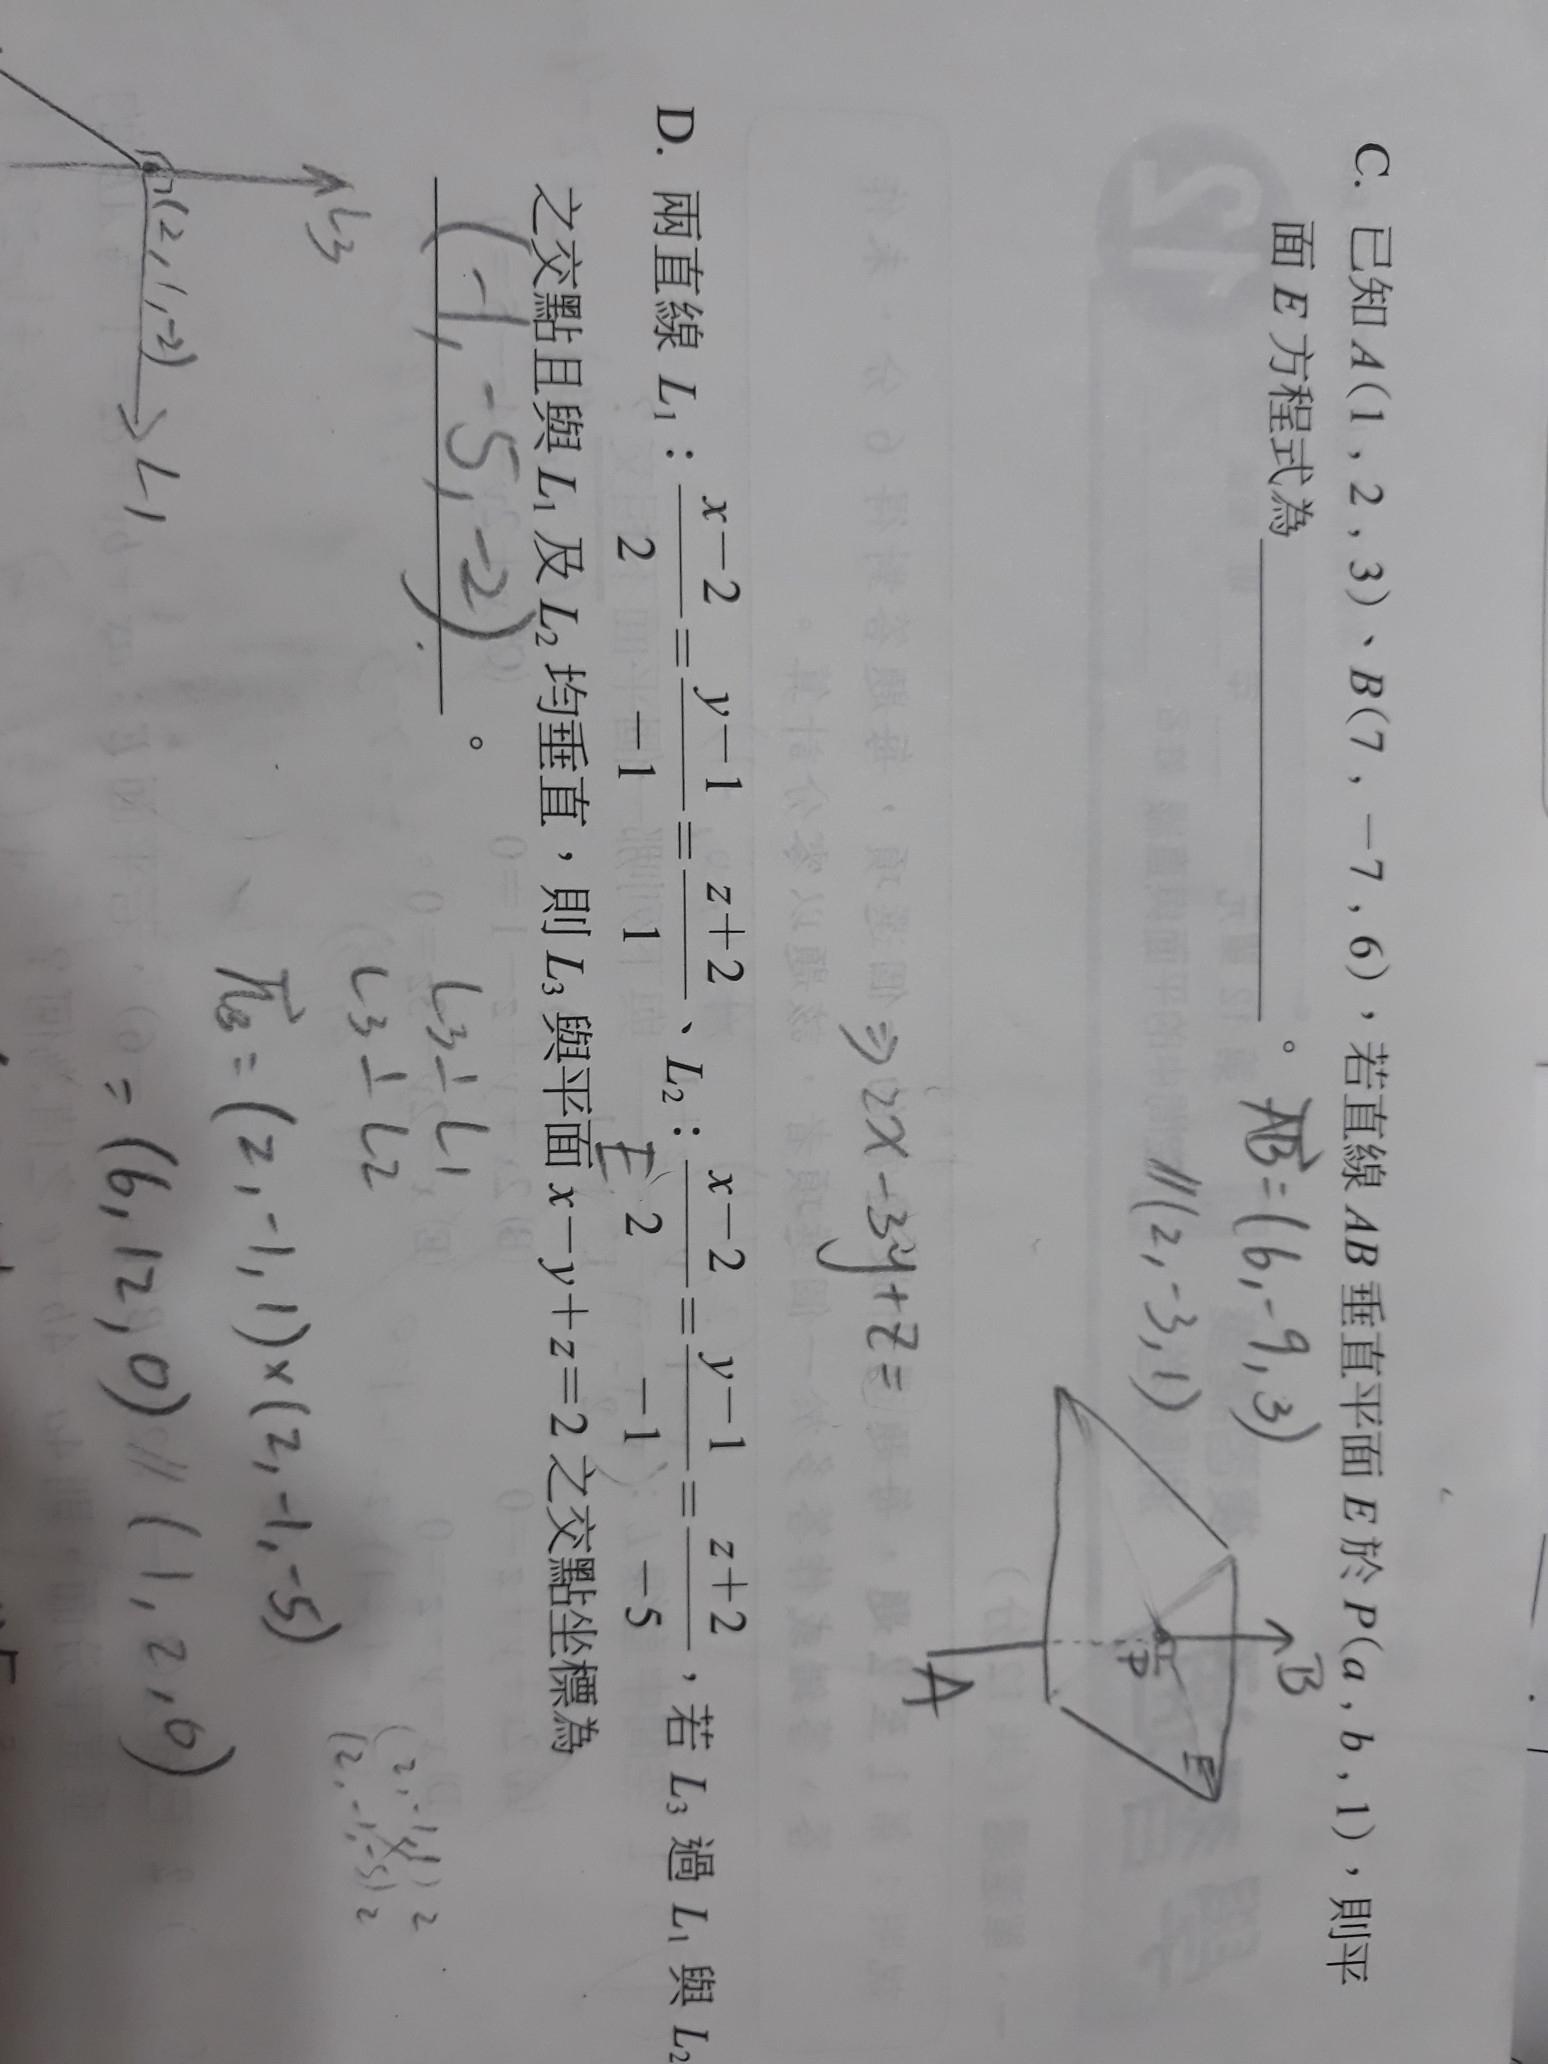 C. 已知 A(1,2,3)、B(7,-7,6),若直線 AB 垂直平面 E 於 P(a,b,1),則平
面 E 方程式為____________。
AB=(6,-9,3)
//(2,-3,1)
⇒2x-3y+z=
B
P
E
A
D. 兩直線 L₁:(x-2)/2=(y-1)/-1=(z+2)/1、L₂:(x-2)/2=(y-1)/-1=(z+2)/-5,若 L₃ 過 L₁ 與 L₂
之交點且與 L₁ 及 L₂ 均垂直,則 L₃ 與平面 x-y+z=2 之交點坐標為
E
(-1,-5,-2)。
L3⊥L1
L3⊥L2
=(2,-1,1)×(2,-1,-5)
=(6,12,0)//(1,2,0)
(2,-1,1)2
(2,-1,-5)2
L3
(2,1,-2)
L1